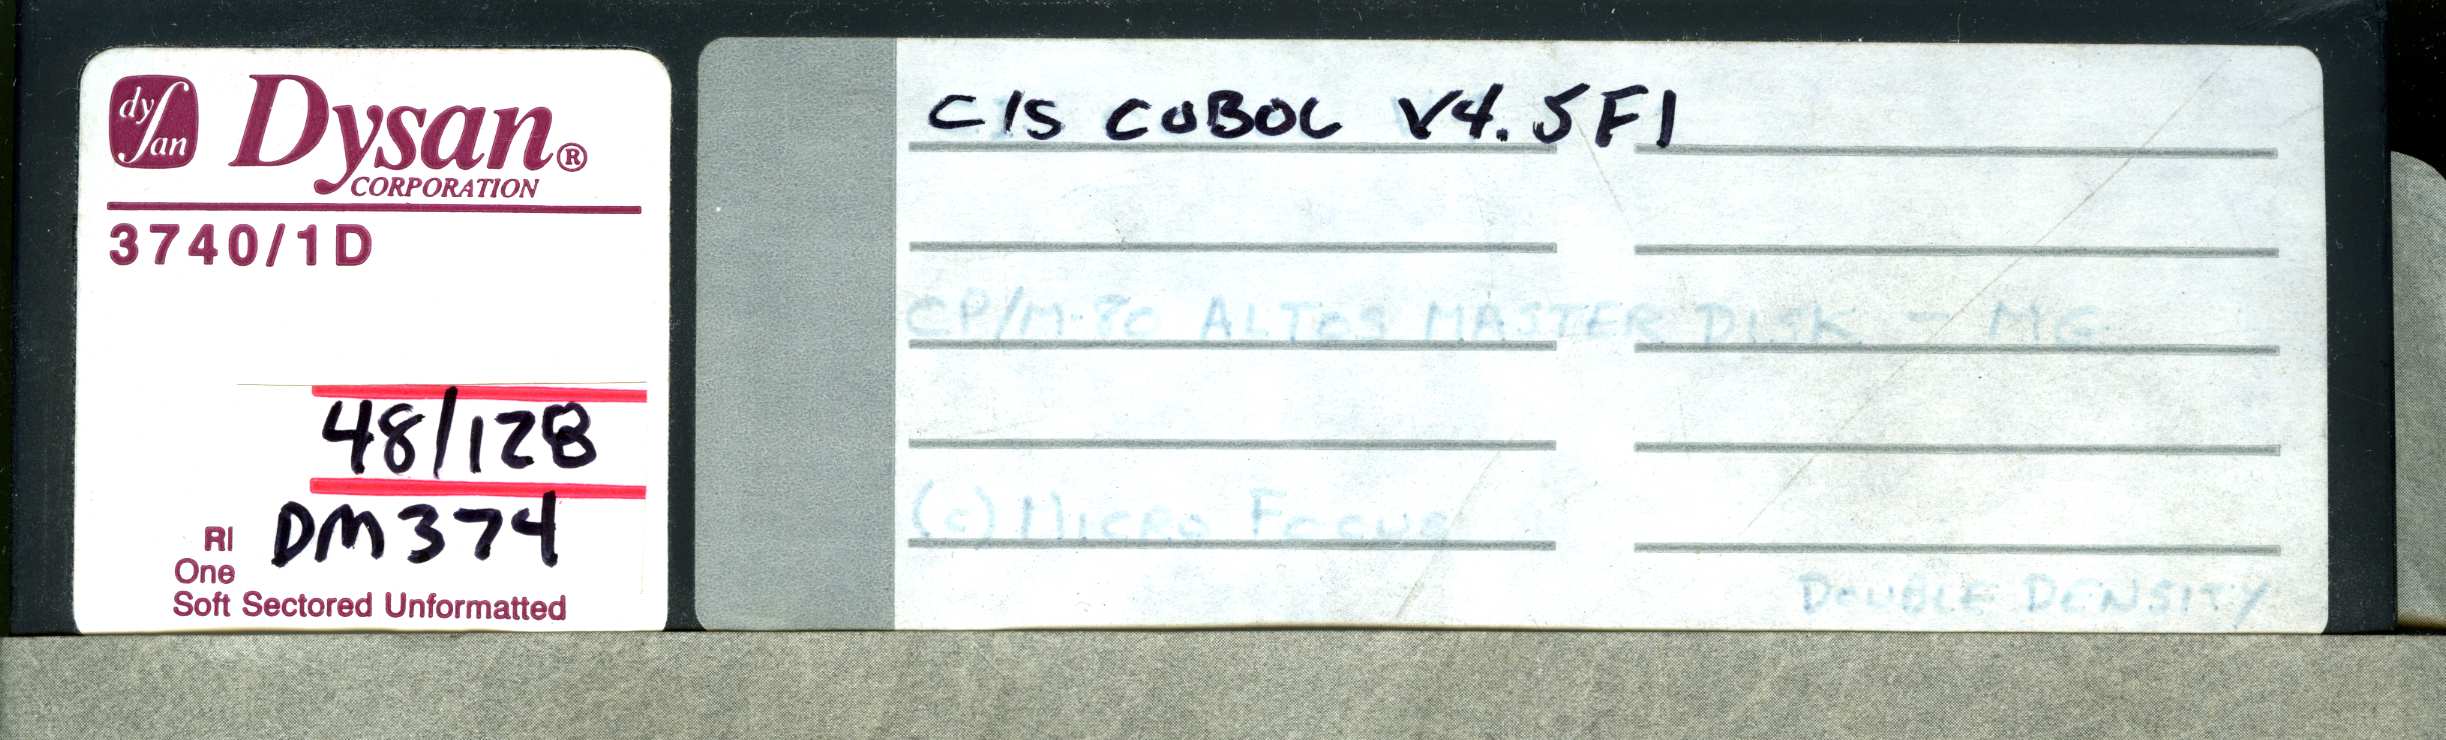 dysan
Dysan®
CORPORATION
3740/1D
48/128
RI
DM374
One
Soft Sectored Unformatted
CIS COBOL V4.5F1
CP/M-80 ALTOS MASTER DISK - MG
(c) MICRO FOCUS
DOUBLE DENSITY